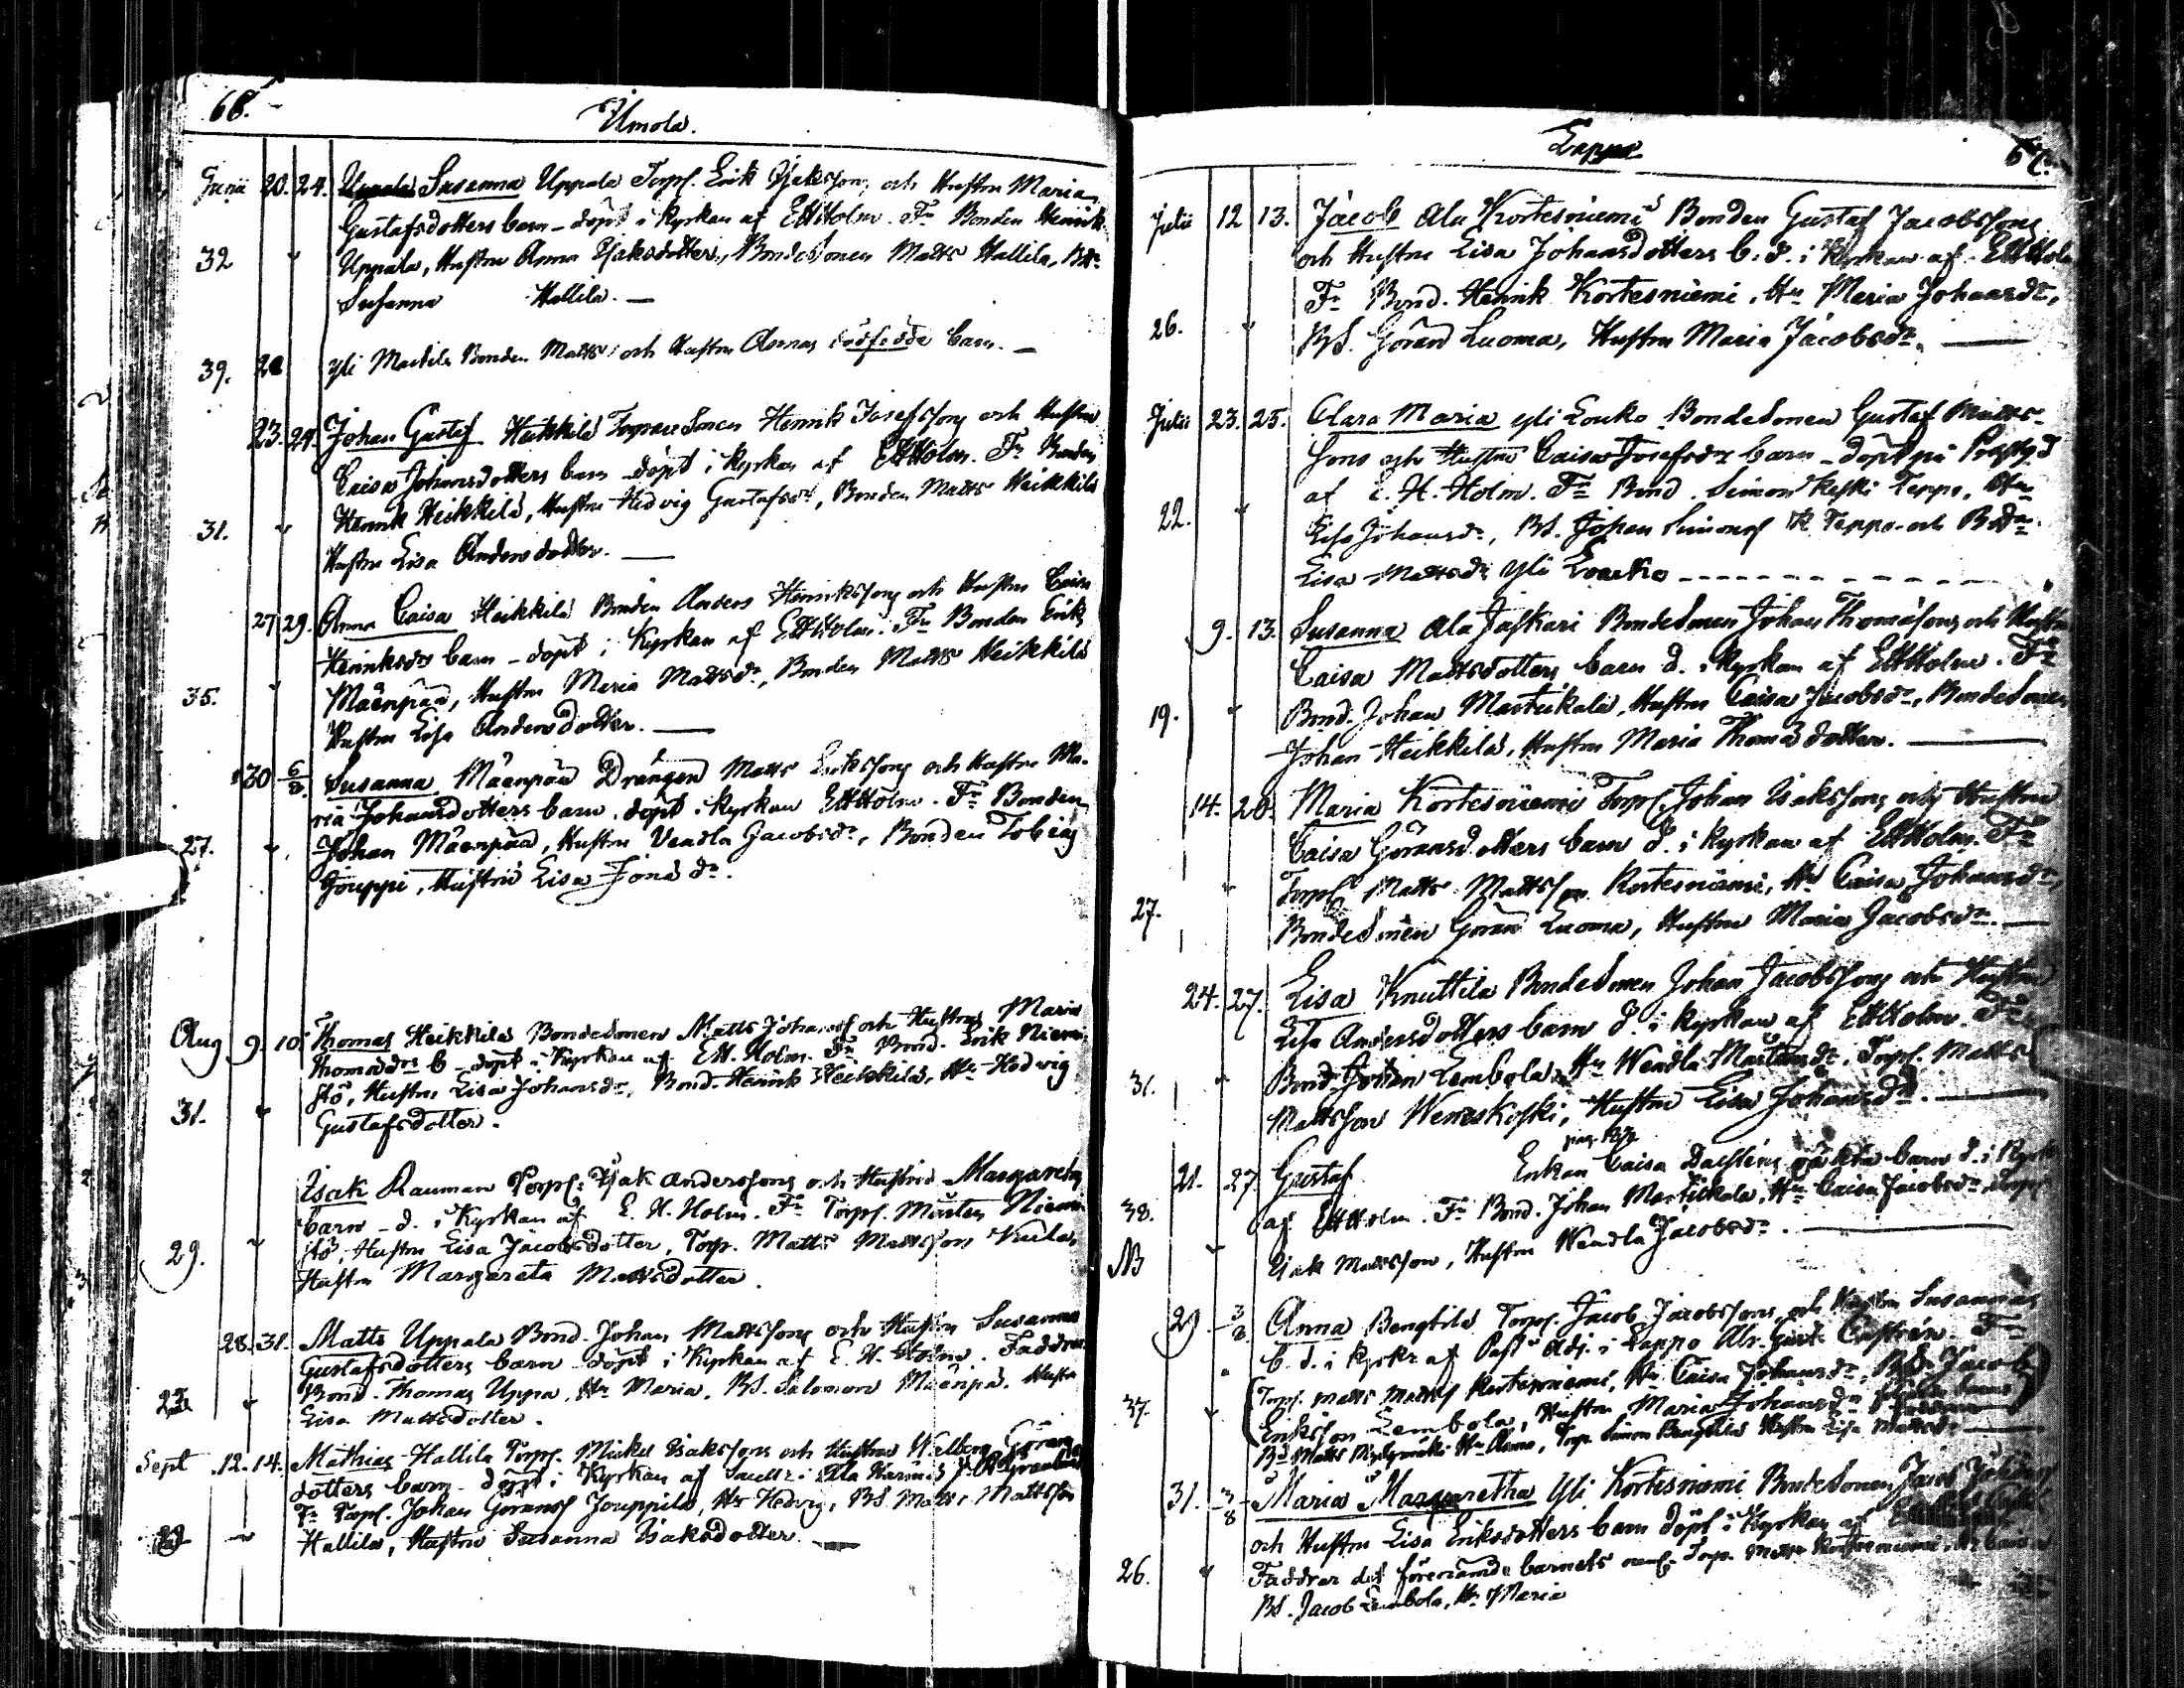 66.
Ilmola.
Junii 20. 24. Susanna Uppala Torp. Erik Isakssons och Hustru Maria
Gustafsdotters barn - döpt i kyrkan af EHHolm. Fr Bonden Henrik
32 Uppala, Hustru Anna Isaksdotter, BondeSonen Matts Hallila, Bdr
Susanna Hallila. —
39. 20 yli Mattila Bonden Matts och Hustru Annas dödfödde barn. —
23. 24. Johan Gustaf Heikkilä Henrik Josefssons och Hustru
Caisa Johansdotters barn döpt i kyrkan af EHHolm. Fr Bonden
31. Henrik Heikkilä, Hustru Hedvig Gustafsdr, Bonden Matts Heikkilä
Hustru Lisa Andersdotter. —
27 29. Anna Caisa Heikkilä Bonden Anders Henrikssons och Hustru Caisa
Henriksdrs barn - döpt i Kyrkan af EHHolm. Fr Bonden Erik
35. Mäenpää, Hustru Maria Mattsdr, Bonden Matts Heikkilä
Hustru Lisa Andersdotter. —
30 6/8. Susanna Mäenpää Drängen Matts Erikssons och Hustru Ma-
ria Johansdotters barn, döpt i kyrkan EHHolm. Fr Bonden
27. Johan Mäenpää, Hustru Vendla Jacobsdr, Bonden Tobias
Jouppi, Hustru Lisa Jonædr.
Aug 9. 10. Thomas Heikkilä BondeSonen Matts Johanss och Hustrus Maria
Thomædrs b - döpt i Kyrkan af EH. Holm. Fr Bond. Erik Niemi-
31. stö, Hustru Lisa Johansdr, Bond. Henrik Heikkilä, Hu Hedvig
Gustafsdotter.
Isak Rauman Torp. Isak Anderssons och Hustru Margareta
barn - d. i Kyrkan af E. H. Holm. Fr Torp. Mårten Niemi-
29. stö, Hustru Lisa Jacobsdotter, Torp. Matts Mattsson
Hustru Margareta Mattsdotter.
28. 31. Matts Uppala Bond. Johan Mattssons och Hustru Susanna
Gustafsdotters barn döpt i Kyrkan af E. H. Holm. Faddrar
Bond. Thomas Uppa, Hu Maria, BS. Salomon Mäenpä, Hustru
Lisa Mattsdotter.
Sept 12. 14. Mathias Hallila Torp. Mickel Isakssons och Hustrus Walborg Görans
dotters barn - döpt i Kyrkan af
Fr Torp. Johan Göranss Jouppila, Hu Hedvig, BS. Matts Mattsson
Hallila, Hustru Susanna Isaksdotter. —
Lappo
67.
Julii 12 13. Jacob Ala Kortesniemi Bonden Gustaf Jacobssons
och Hustru Lisa Johansdotters b. d. i Kyrkan af EHHolm
Fr Bond. Henrik Kortesniemi, Hu Maria Johansdr,
26. BS. Göran Luoma, Hustru Maria Jacobsdr. —
Julii 23. 25. Clara Maria yli Louko BondeSonen Gustaf Matts-
sons och Hustru Caisa Josefsdrs barn - döpt på Prestgd
af E. H. Holm. Fr Bond. Simon Keski Teppo, Hu
22. Lisa Johansdr, BS. Johan Simonss K Teppo och Bdr
Lisa Mattsdr Yli Louko - - - - - - - -
9. 13. Susanna Ala Jaskari BondeSonen Johan Thomæssons och Hustru
Caisa Mattsdotters barn d. i Kyrkan af EHHolm. Fr
19. Bond. Johan Martikala, Hustru Caisa Jacobsdr, BondeSonen
Johan Heikkilä, Hustru Maria Thomædotter. —
14. 20. Maria Kortesniemi Torp. Johan Isakssons och Hustru
Caisa Göransdotters barn d. i Kyrkan af EHHolm. Fr
Torp. Matts Mattsson Kortesniemi, Hu Caisa Johansdr,
27. BondeSonen Göran Luoma, Hustru Maria Jacobsdr. —
24. 27. Lisa Knuttila BondeSonen Johan Jacobssons och Hustru
Lisa Andersdotters barn d. i kyrkan af EHHolm. Fr
31. Bond. Johan Lembola, Hu Wendla Mårtensdr, Torp. Matts
Mattsson Weneskoski, Hustru Lisa Johansdr. —
21. 27. Gustaf Enkan Caisa oäkta barn d. i Kyrk
38. af EHHolm. Fr Bond. Johan Martikala, Hu Caisa Jacobsdr, Torp
NB Isak Mattsson, Hustru Wendla Jacobsdr. —
29. 3/8 Anna Bengtilä Torp. Jacob Jacobssons och Hustru Susannas
b. d. i kyrk. af Past. Adj. i Lappo Castrén. Fr
37. (Torp. Matts Mattss Kortesniemi, Hu Caisa Johansdr, BS. Jacob
Eriksson Lembola, Hustru Maria Johansdr
Bd Matts Hu Anna, Torp Simon Bengtilä Hustru Lisa Mattsdr —
31. 3/8 Maria Margaretha Yli Kortesniemi BondeSonen Jacob
och Hustru Lisa Eriksdotters barn döpt i Kyrkan af
26. Faddrar det förenämde barnets neml. Torp. Matts Kortesniemi, Hu Caisa
BS. Jacob Lembola, Hu Maria